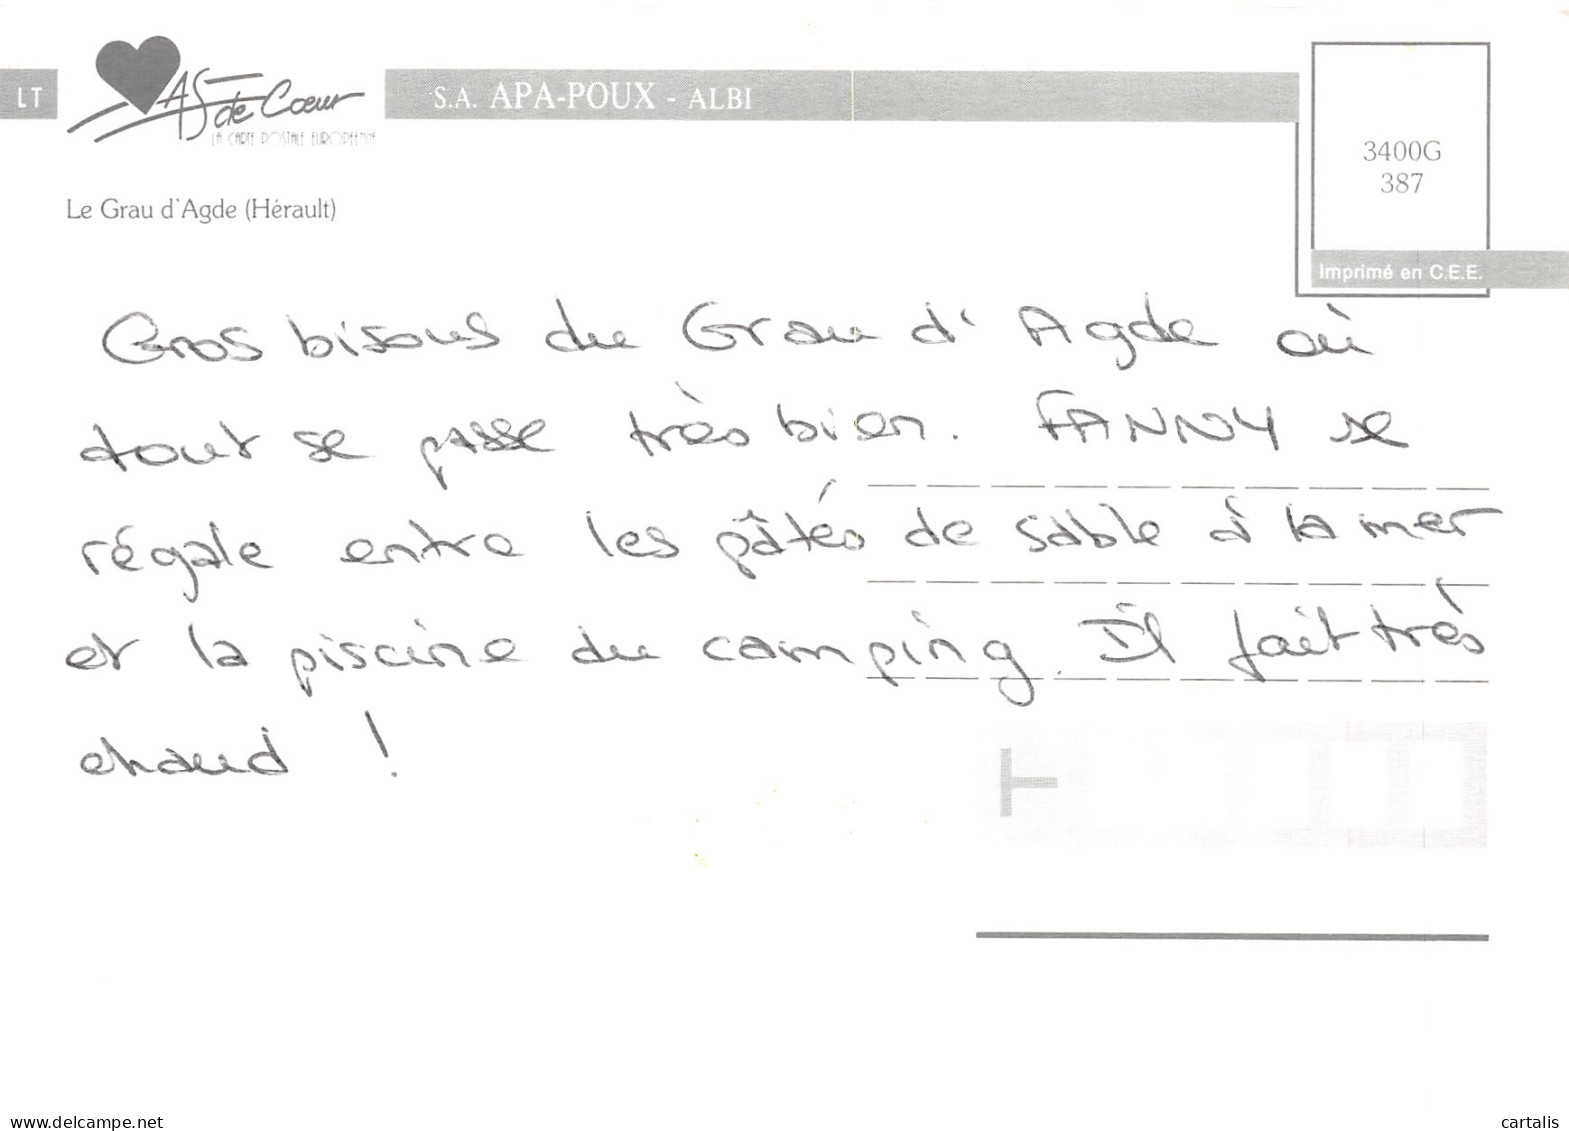 LT
AS de Cœur
LA CARTE POSTALE EUROPEENNE
S.A. APA-POUX - ALBI
3400G
387
Imprimé en C.E.E.
Le Grau d'Agde (Hérault)
Gros bisous du Grau d'Agde où
tout se passe très bien. FANNY se
régale entre les pâtés de sable à la mer
et la piscine du camping. Il fait très
chaud !
delcampe.net
cartalis